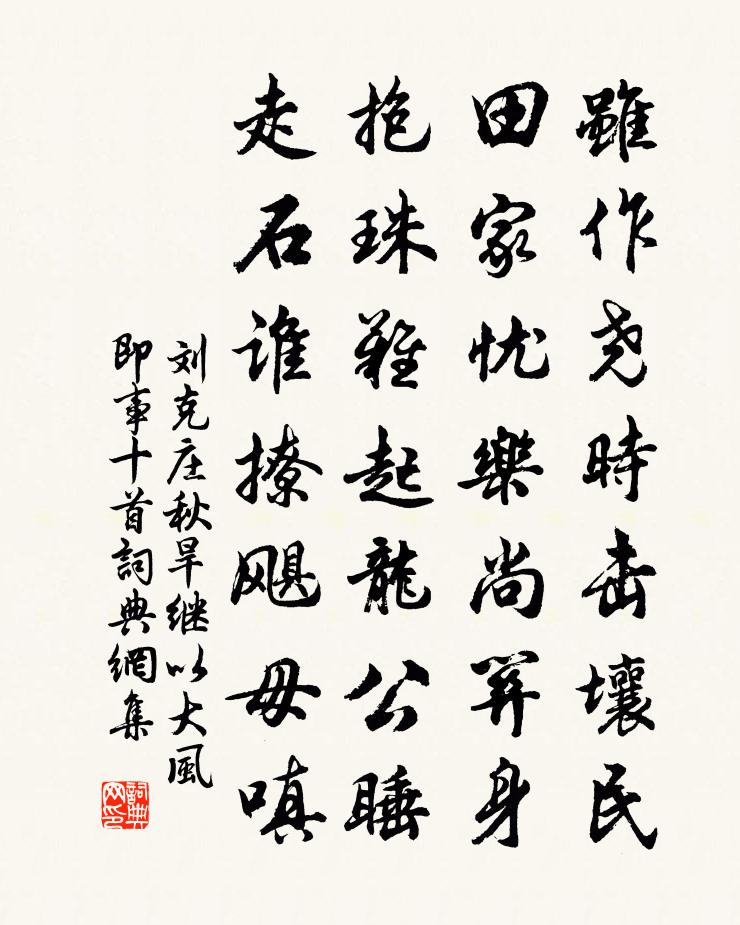 雖作尧時击壤民
田家忧樂尚關身
抱珠難起龍公睡
走石誰撩颶母嗔
刘克庄秋旱继以大風
即事十首詞典網集
詞典网印